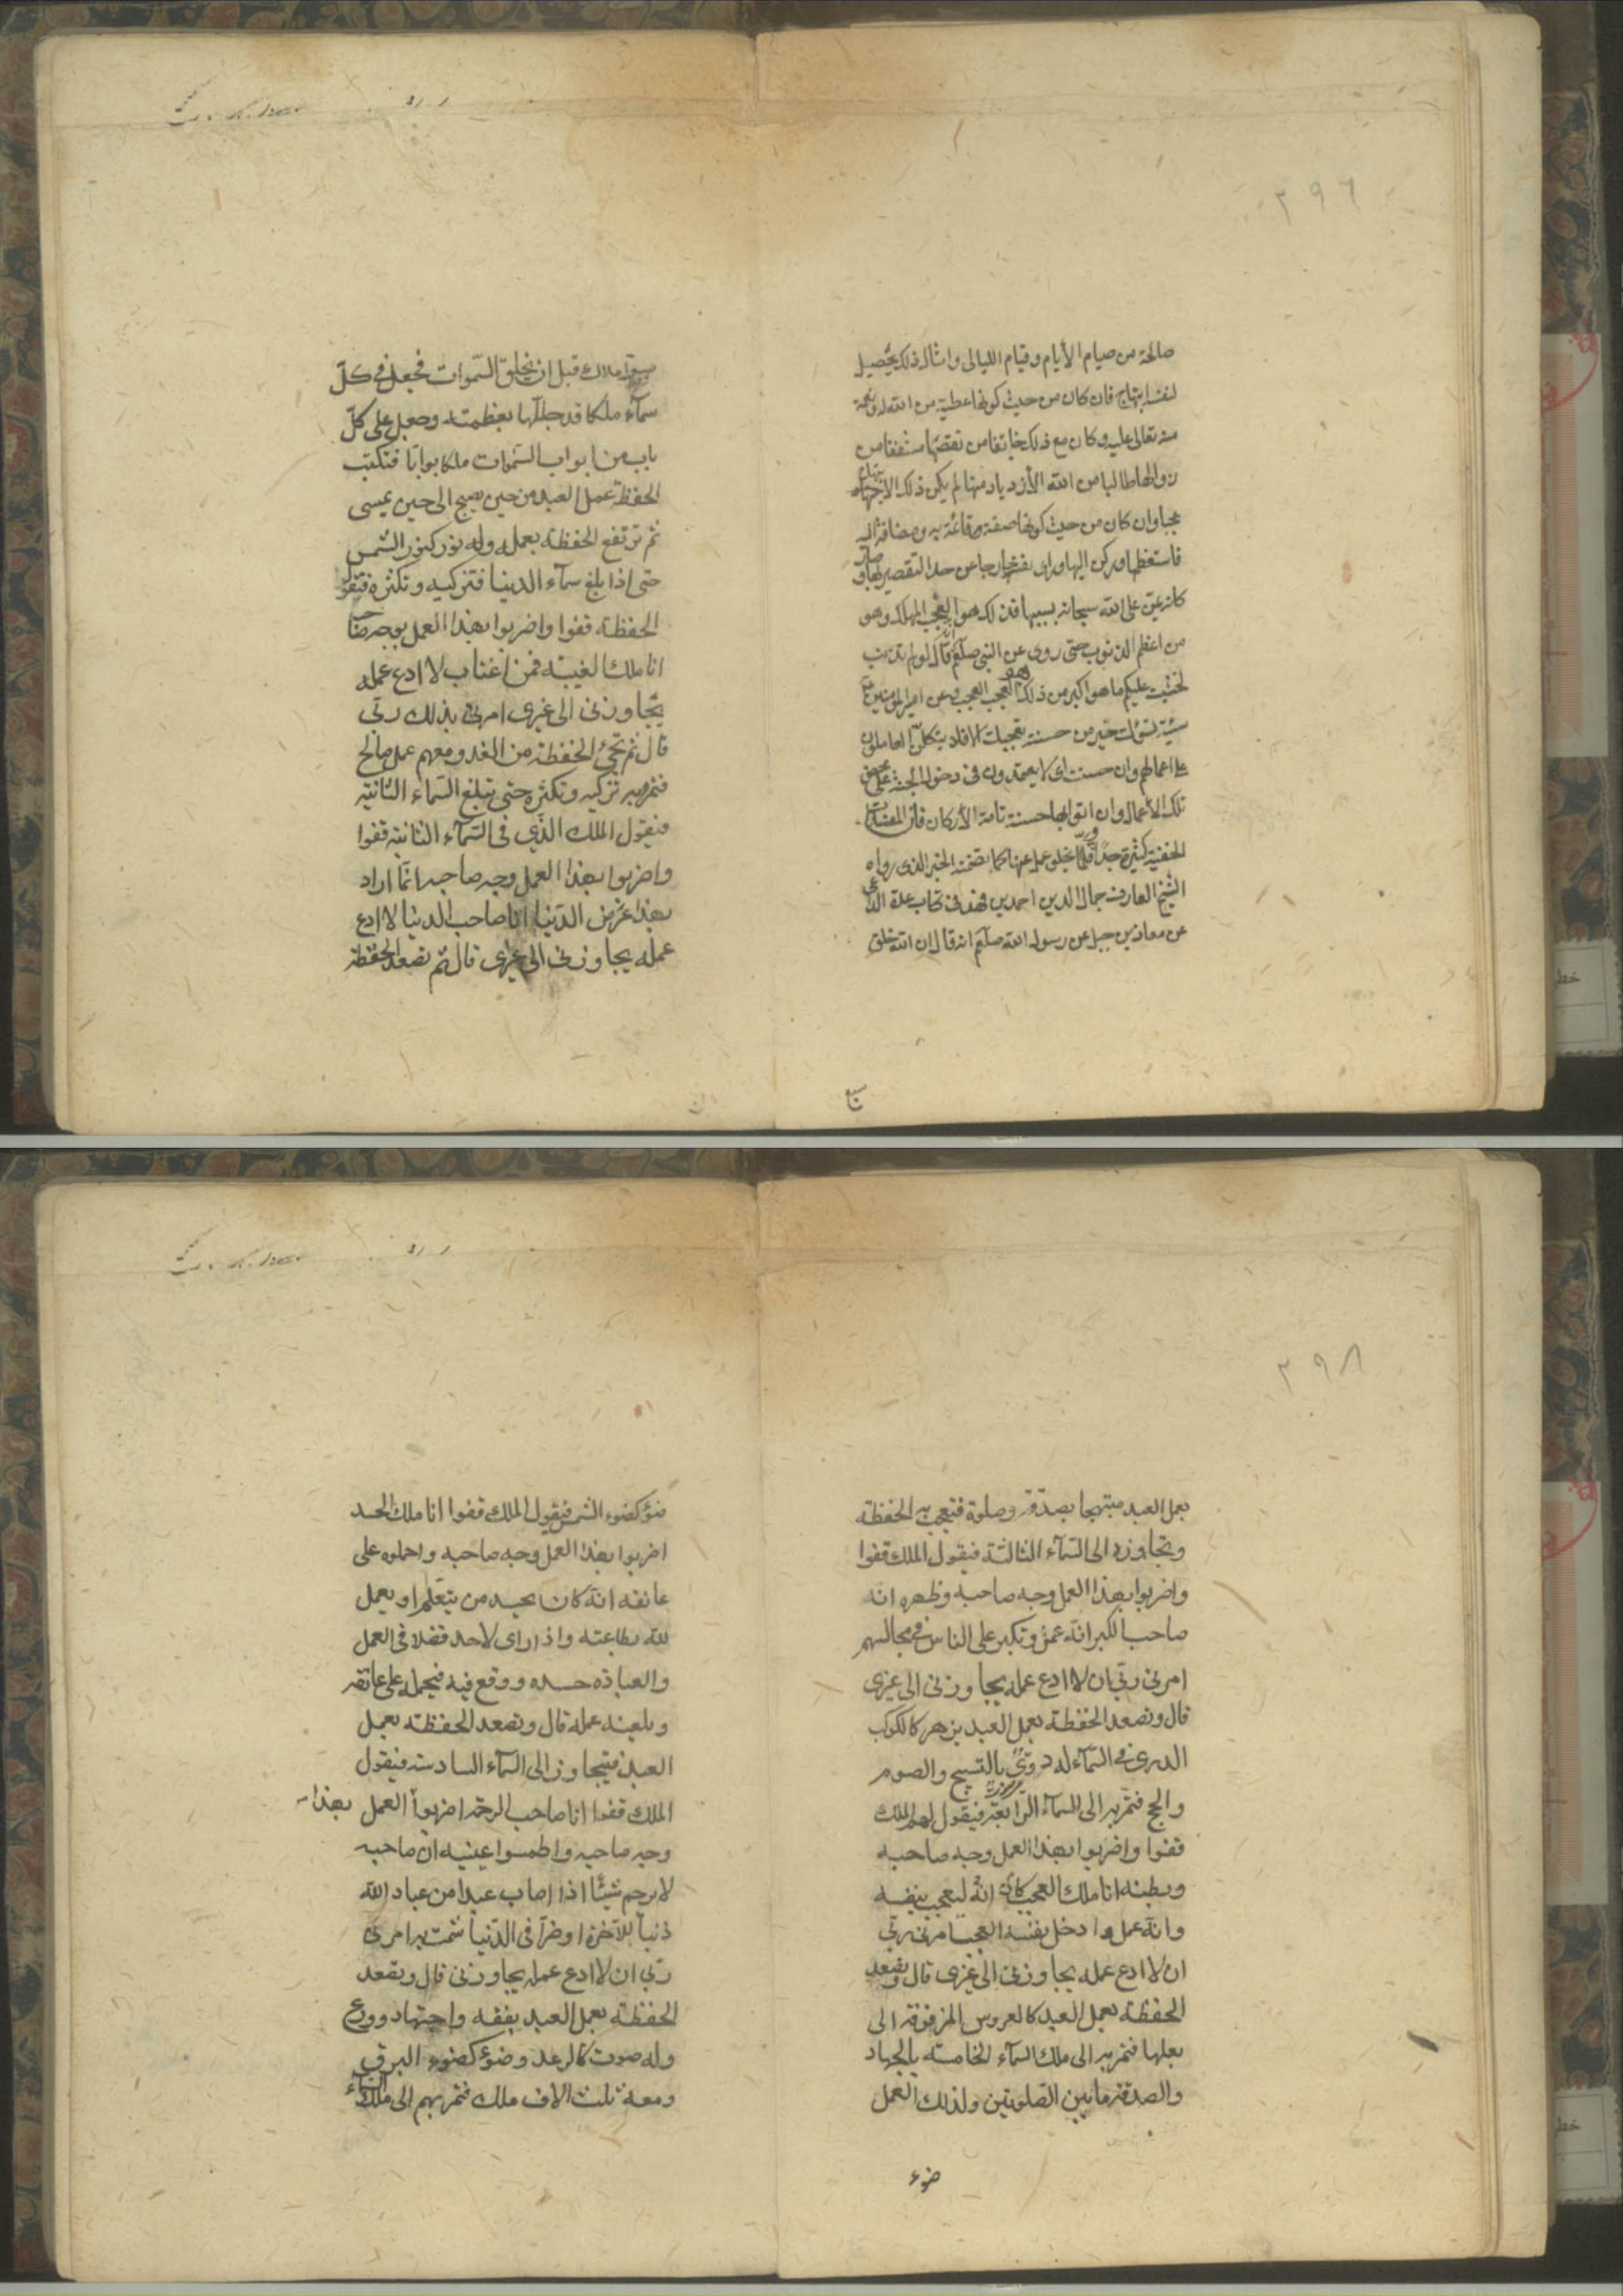 ٢٩٦
صالحة من صيام الأيام وقيام الليالى وامثال ذلك يحصيل
لنفسه ابتهاج فان كان من حيث كونها عطية من الله له ونعمة
منه تعالى عليه وكان مع ذلك خائفا من نقصها مشفقا من
زوالها طالبا من الله الأزدياد منها لم يكن ذلك الابتهاج
عجبا وان كان من حيث كونها صفته وقائمة به ومضافة اليه
فاستعظمها وركن اليها وراى نفسه خارجا عن حد التقصير بها وصار
كانه يمن على الله سبحانه بسببها فذلك هو العجب المهلك وهو
من اعظم الذنوب حتى روى عن النبى صلعم انه قال لو لم تذنبوا
لخشيت عليكم ما هو اكبر من ذلك وهو العجب العجب وعن امير المؤمنين ع
سيئة تسوءك خير من حسنة تعجبك فلا يتكل العاملون
على اعمالهم وان حسنت اى لا يعتمدون فى دخول الجنة على محض
تلك الأعمال وان اتوا بها حسنة تامة الأركان فان المفسدات
الخفية كثيرة جدا وقلما يخلو عمل عنها كما تضمنه الخبر الذى رواه
الشيخ العارف جمال الدين احمد بن فهد فى كتاب عدة الداعى
عن معاذ بن جبل عن رسول الله صلعم انه قال ان الله خلق
سبع
سبعة املاك قبل ان يخلق السموات فجعل فى كل
سمآء ملكا قد جللها بعظمته وجعل على كل
باب من ابواب السموات ملكا بوابا فتكتب
الحفظة عمل العبد من حين يصبح الى حين يمسى
ثم ترتفع الحفظة بعمله وله نور كنور الشمس
حتى اذا بلغ سمآء الدنيا فتزكيه وتكثره فيقول
الحفظة قفوا واضربوا بهذا العمل وجه صاحبه
انا ملك الغيبة فمن اغتاب لا ادع عمله
يتجاوزنى الى غيرى امرنى بذلك ربى
قال ثم تجئ الحفظة من الغد ومعهم عمل صالح
فتمر به تزكيه وتكثره حتى تبلغ السماء الثانية
فيقول الملك الذى فى السمآء الثانية قفوا
واضربوا بهذا العمل وجه صاحبه انما اراد
بهذا غرض الدنيا انا صاحب الدنيا لا ادع
عمله يجاوزنى الى غيرى قال ثم تصعد الحفظة
٢٩٨
بعمل العبد مبتهجا بصدقة وصلوة فتعجب به الحفظة
وتجاوزه الى السمآء الثالثة فيقول الملك قفوا
واضربوا بهذا العمل وجه صاحبه وظهره انه
صاحب الكبر انه عمل وتكبر على الناس فى مجالسهم
امرنى ربى ان لا ادع عمله يجاوزنى الى غيرى
قال وتصعد الحفظة بعمل العبد يزهر كالكوكب
الدرى فى السمآء له دوى بالتسبيح والصوم
والحج فتمر به الى السمآء الرابعة فيقول لهم الملك
قفوا واضربوا بهذا العمل وجه صاحبه
وبطنه انا ملك العجب كان انه ليعجب بنفسه
وانه عمل وادخل نفسه العجب امرنى ربى
ان لا ادع عمله يجاوزنى الى غيرى قال وتصعد
الحفظة بعمل العبد كالعروس المزفوفة الى
بعلها فتمر به الى ملك السمآء الخامسة بالجهاد
والصدقة ما بين الصلوتين ولذلك العمل
ضوء
ضوء كضوء الشمس فيقول الملك قفوا انا ملك الحسد
اضربوا بهذا العمل وجه صاحبه واحملوه على
عاتقه انه كان يحسد من يتعلم او يعمل
لله بطاعته واذا راى لاحد فضلا فى العمل
والعبادة حسده ووقع فيه فيحمله على عاتقه
ويلعنه عمله قال وتصعد الحفظة بعمل
العبد فيتجاوز الى السمآء السادسة فيقول
الملك قفوا انا صاحب الرحمة اضربوا بهذا العمل
وجه صاحبه واطمسوا عينيه ان صاحبه
لا يرحم شيئا اذا اصاب عبدا من عباد الله
ذنبا للآخرة او ضرا فى الدنيا شمت به امرنى
ربى ان لا ادع عمله يجاوزنى قال وتصعد
الحفظة بعمل العبد بفقه واجتهاد وورع
وله صوت كالرعد وضوء كضوء البرق
ومعه ثلث الاف ملك فتمر بهم الى ملك السماء